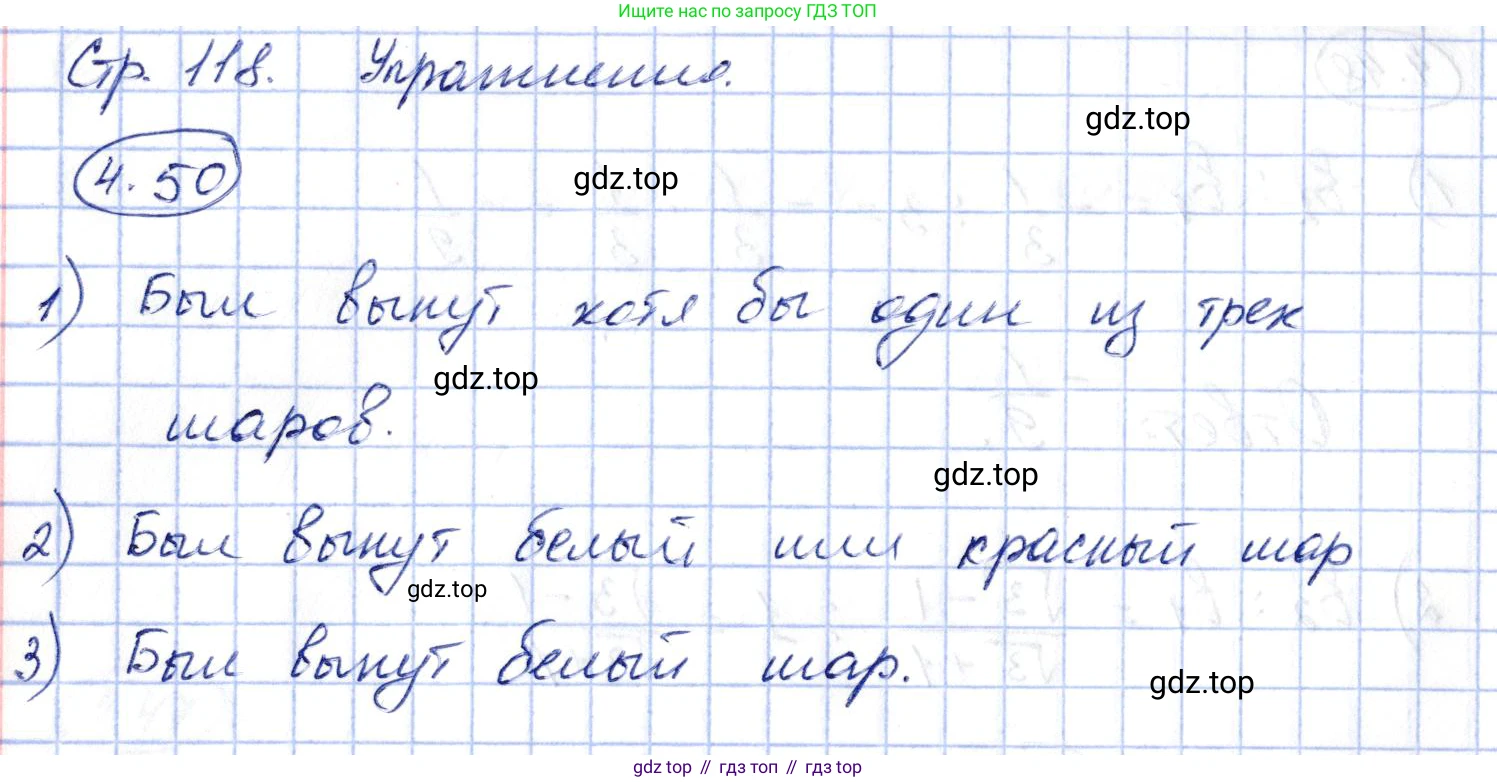 Ищите нас по запросу ГДЗ ТОП
Стр. 118. Упражнения.
gdz.top
4.50
gdz.top
1) Был вынут хотя бы один из трех
gdz.top
шаров.
gdz.top
2) Был вынут белый или красный шар
gdz.top
3) Был вынут белый шар.
gdz.top
gdz top // гдз топ // гдз top